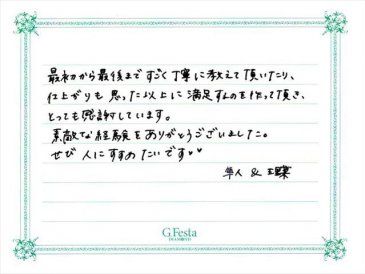 最初から最後まですごく丁寧に教えて頂いたり、
仕上がりも思った以上に満足するものを作って頂き、
とっても感謝しています。
素敵な経験をありがとうございました。
ぜひ人にすすめたいです♥♥
隼人 &
G.Festa
DIAMOND